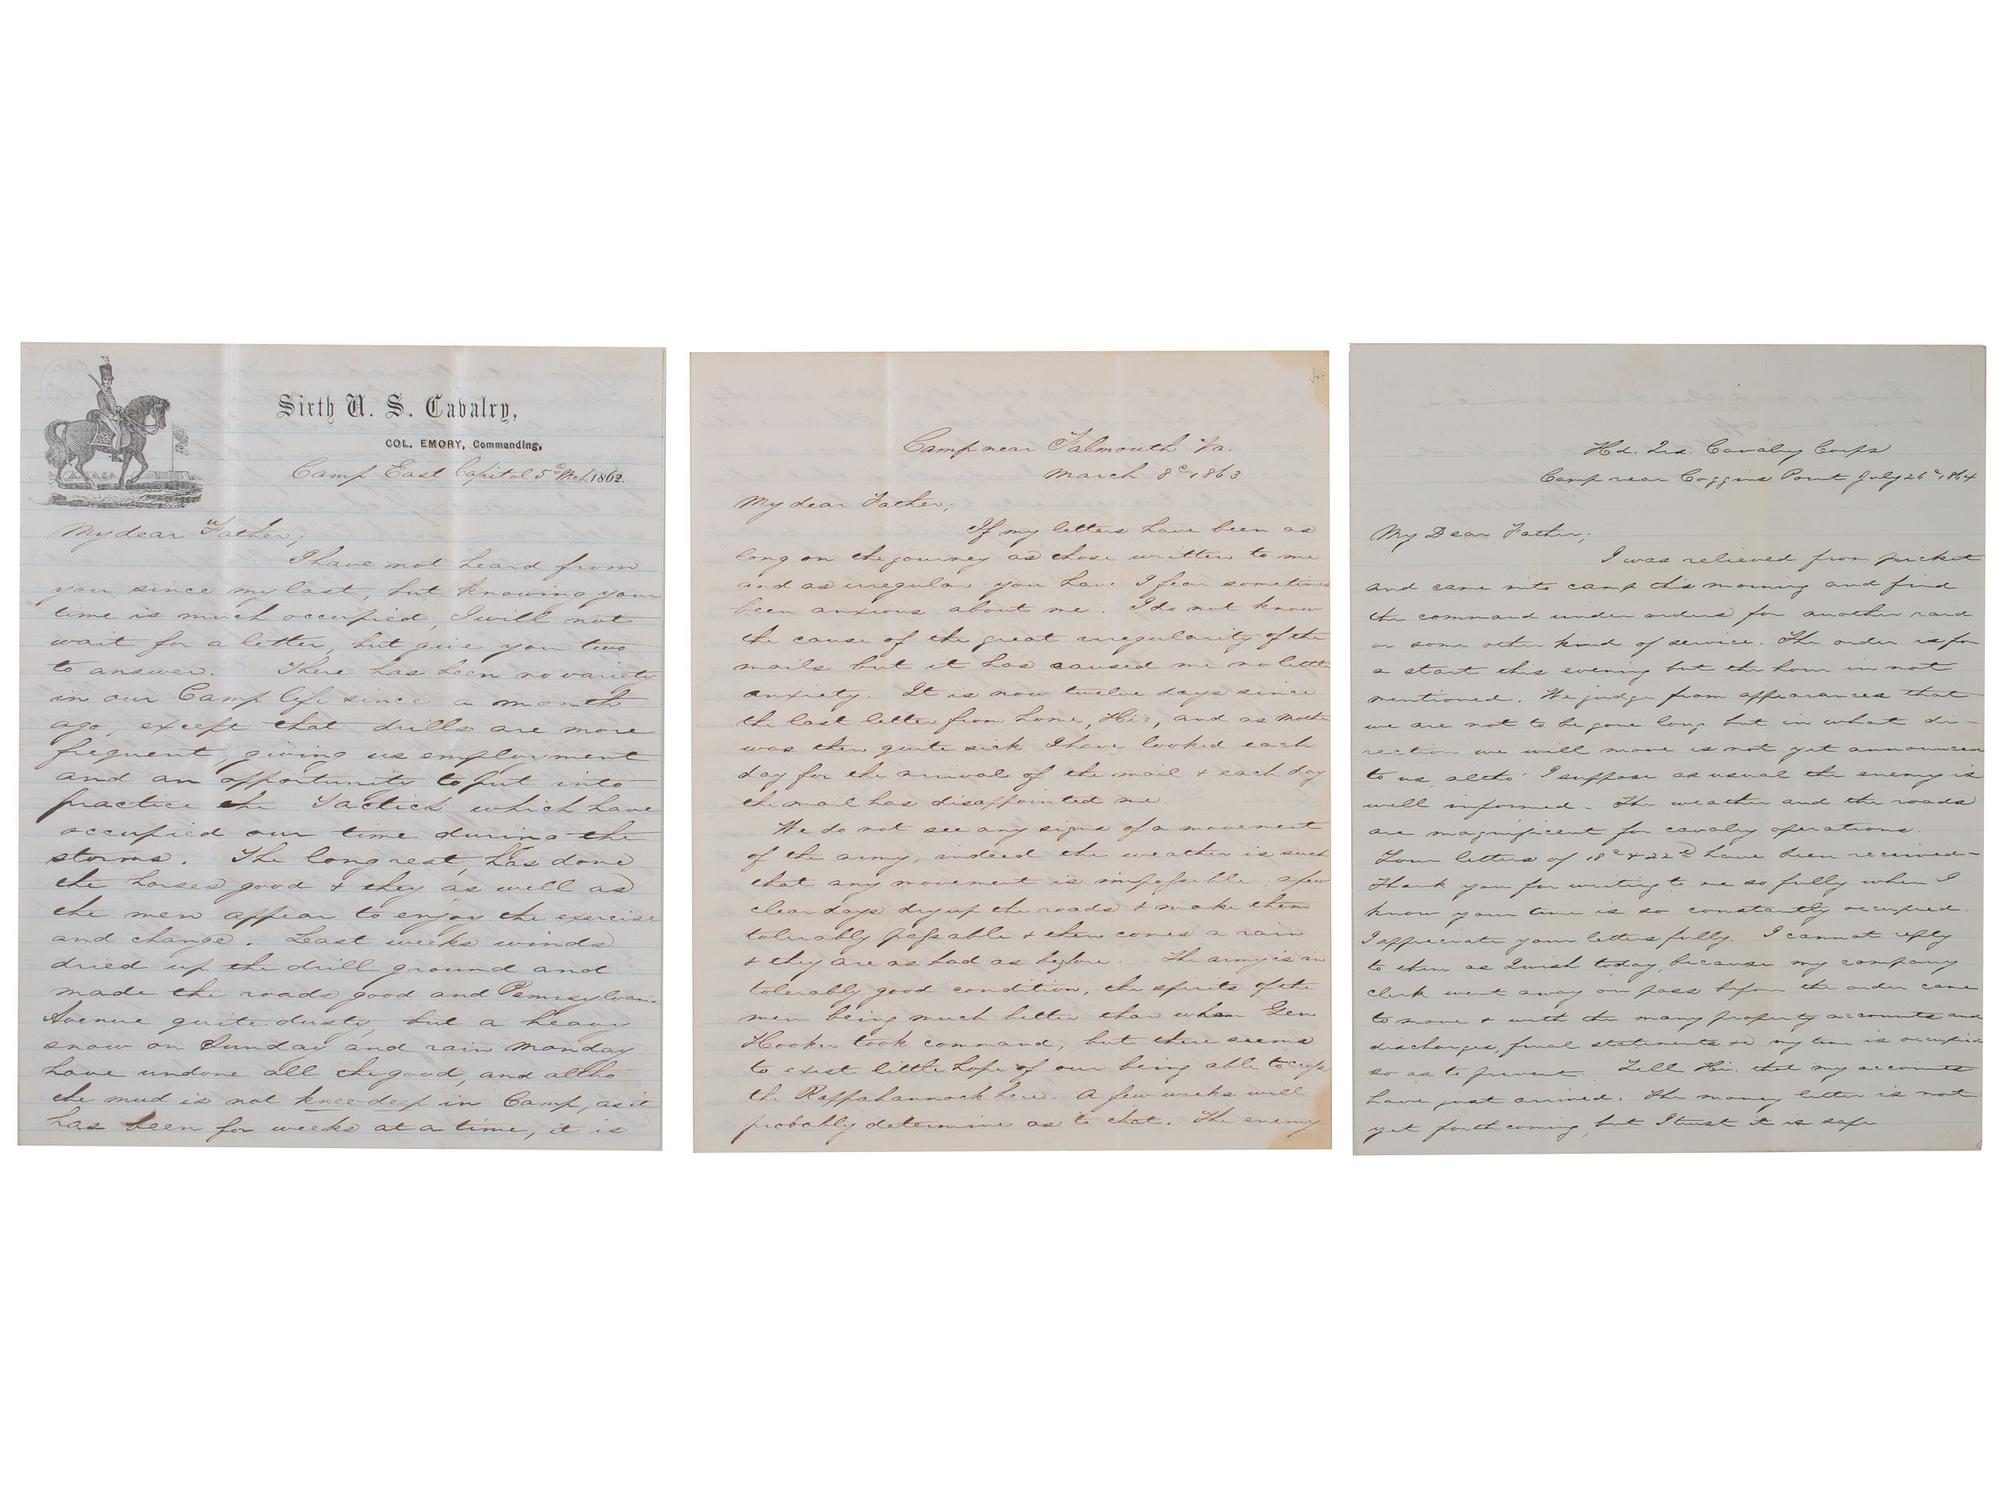 Sixth U. S. Cavalry,
COL. EMORY, Commanding,
Camp East Capitol 5th Mch 1862.
My dear Father;
I have not heard from
you since my last, but knowing your
time is much occupied, I will not
wait for a letter, but give you two
to answer. There has been no variety
in our Camp life since a month
ago, except that drills are more
frequent, giving us employment
and an opportunity to put into
practice the Tactics which have
occupied our time during the
storms. The long rest, has done
the horses good & they as well as
the men appear to enjoy the exercise
and change. Last weeks winds
dried up the drill ground and
made the roads good and Pennsylvania
Avenue quite dusty, but a heavy
snow on Sunday and rain Monday
have undone all the good, and altho
the mud is not knee-deep in Camp, as it
has been for weeks at a time, it is
Camp near Falmouth Va.
March 8th 1863
My dear Father;
If my letters have been as
long on the journey as those written to me
and as irregular you have I fear sometimes
been anxious about me. I do not know
the cause of the great irregularity of the
mails but it has caused me no little
anxiety. It is now twelve days since
the last letter from home, Hi's, and as Mother
was then quite sick I have looked each
day for the arrival of the mail & each day
the mail has disappointed me.
We do not see any signs of a movement
of the army, indeed the weather is such
that any movement is impossible; a few
clear days dry up the roads & make them
tolerably passable & then comes a rain
& they are as bad as before. The army is in
tolerably good condition, the spirits of the
men being much better than when Gen
Hooker took command, but there seems
to exist little hope of our being able to cross
the Rappahannock here. A few weeks will
probably determine as to that. The enemy
Hd. Qrs. Cavalry Corps
Camp near Coggins Point July 26th, 1864
My Dear Father;
I was relieved from picket
and came into camp this morning and find
the command under orders for another raid
or some other kind of service. The order is for
a start this evening but the hour is not
mentioned. We judge from appearances that
we are not to be gone long but in what di-
rection we will move is not yet announced
to us, altho' I suppose as usual the enemy is
well informed. The weather and the roads
are magnificent for cavalry operations.
Your letters of 18th & 22d have been received-
Thank you for writing to me so fully when I
know your time is so constantly occupied.
I appreciate your letters fully. I cannot reply
to them as I wish today, because my company
clerk went away on pass before the order came
to move & with the many property accounts and
discharges, final statements &c my time is occupied
so as to prevent. Tell Hi. that my accounts
have just arrived. The money letter is not
yet forthcoming, but I trust it is safe